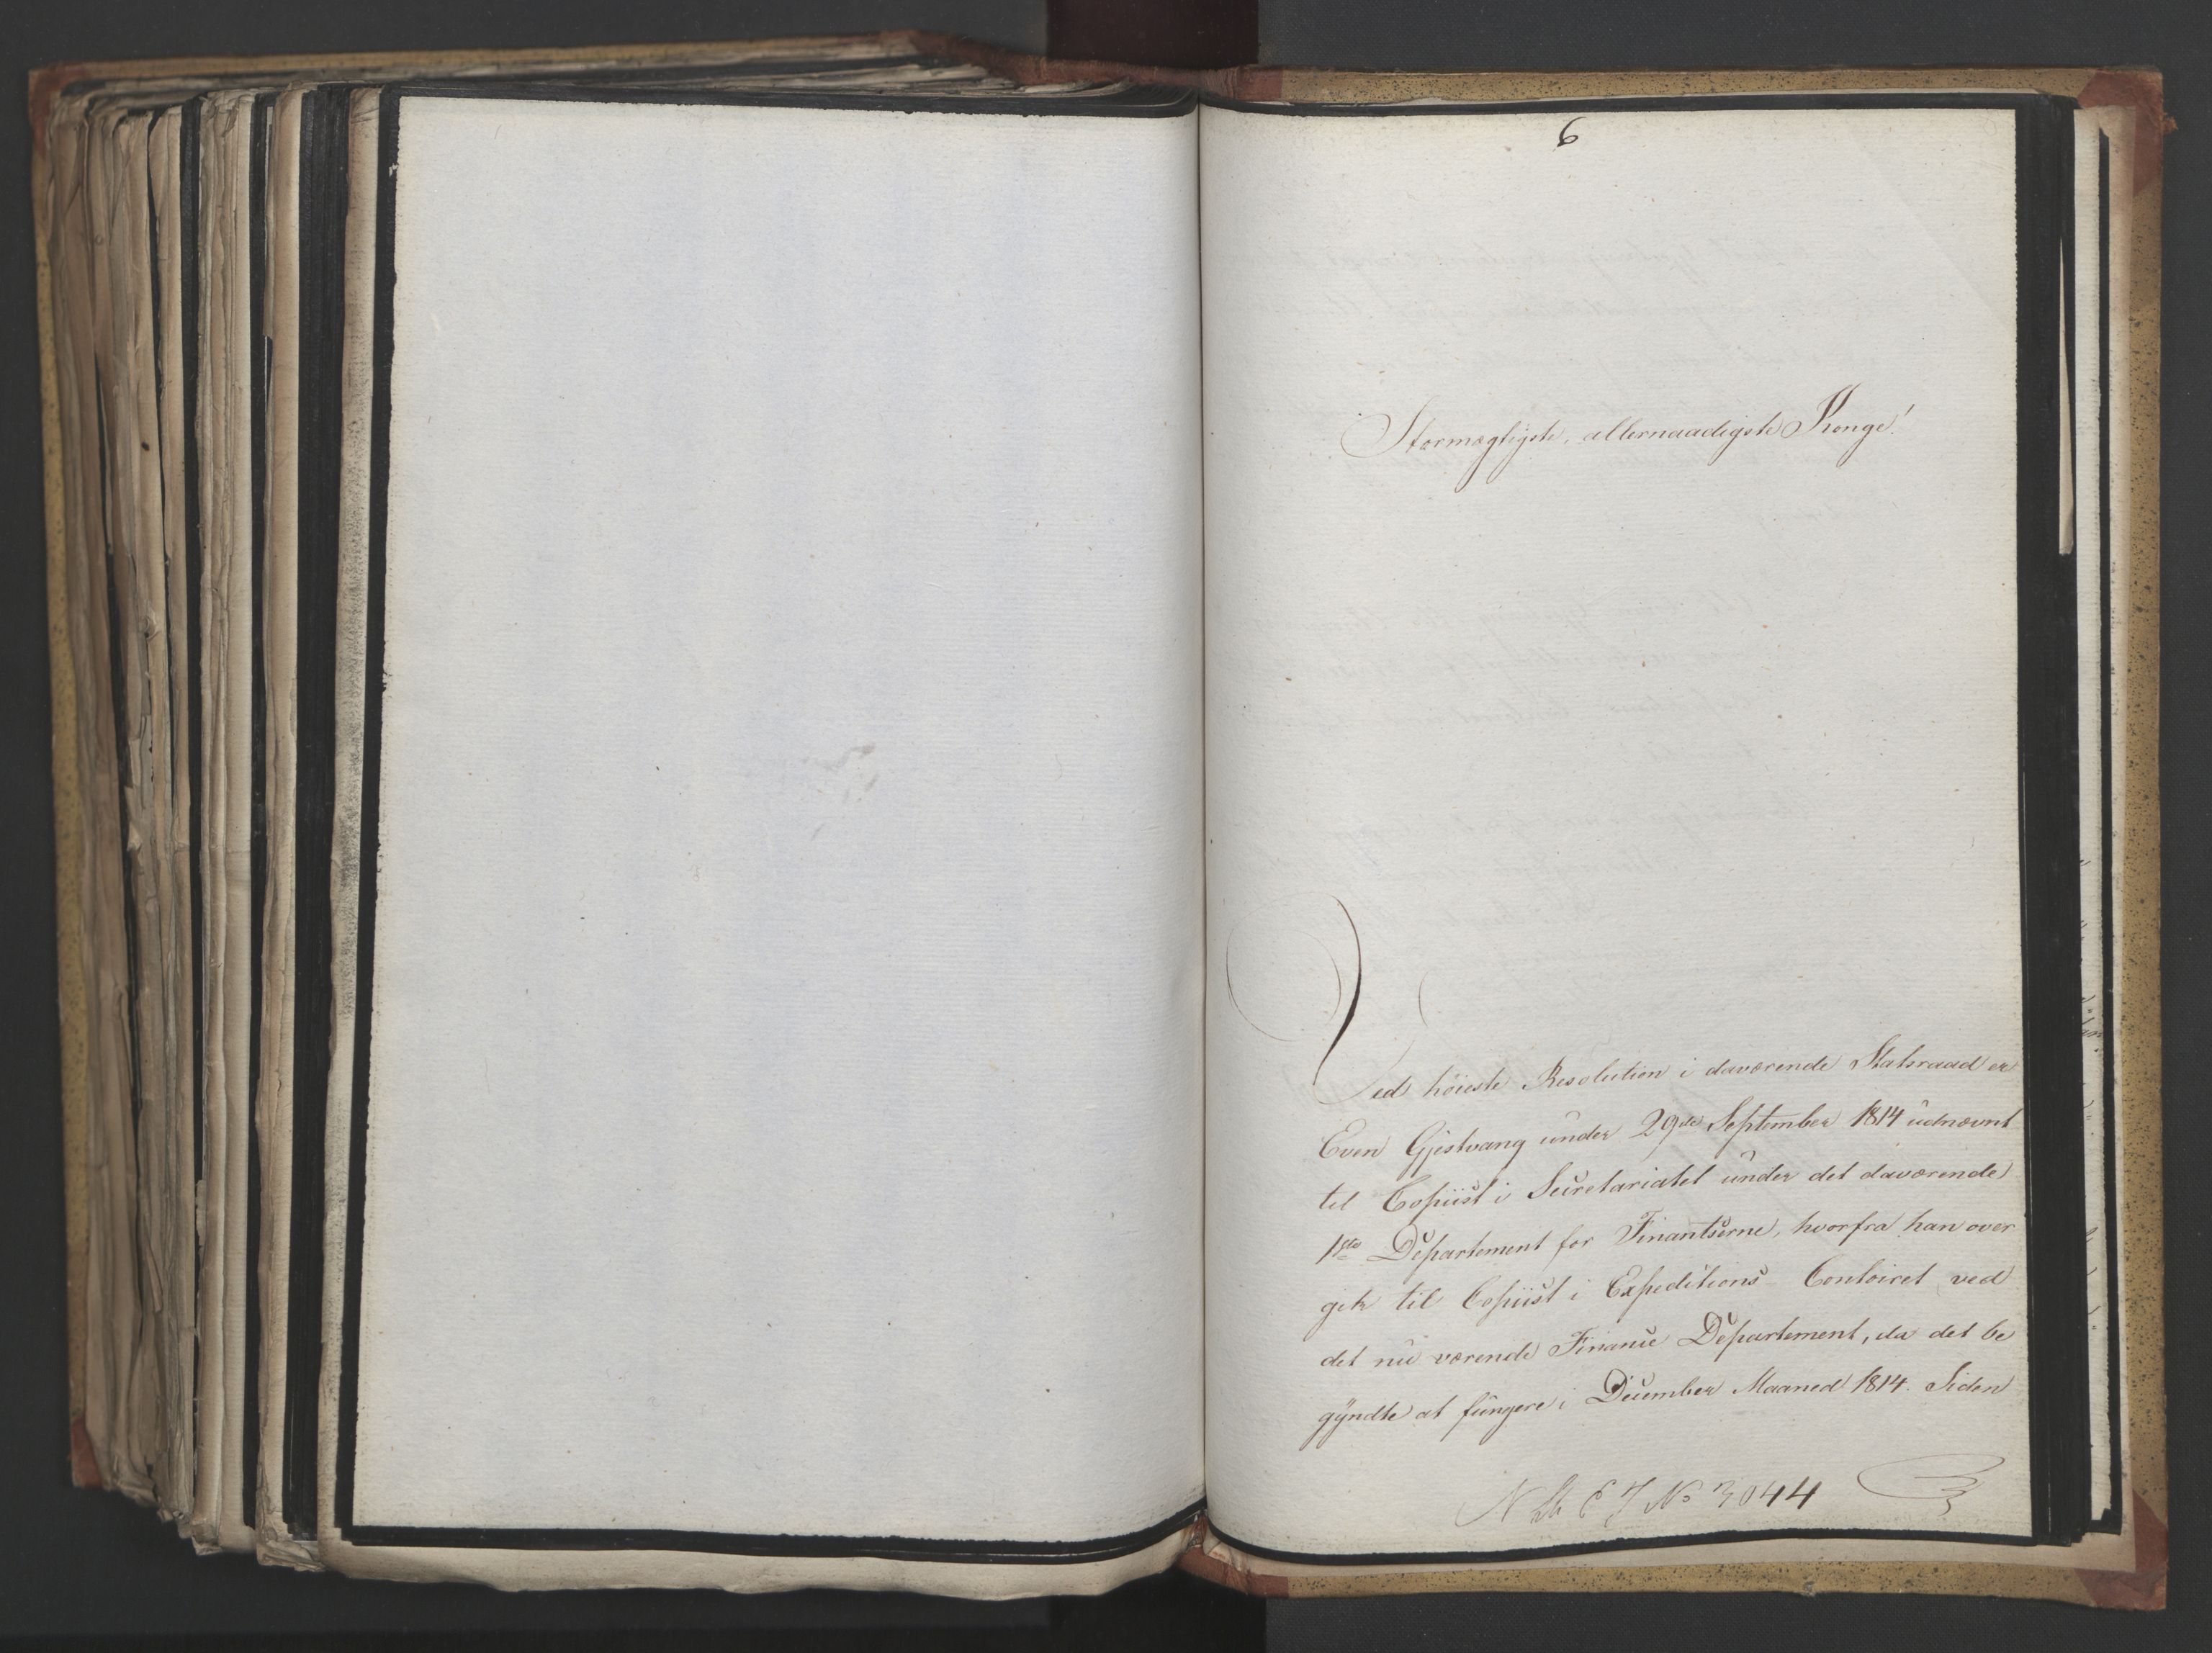 6
Stormægtigste, allernaadigste Konge!
Ved höieste Resolution i daværende Statsraad er
Even Gjestvang under 29de September 1814 udnævnt
til Copiist i Secretariatet under det daværende
1ste Departement for Finantserne, hvorfra han over
gik til Copiist i Expeditions Contoiret ved
det nu værende Finance Departement, da det be
gyndte at fungere i December Maaned 1814. Siden
No 3044